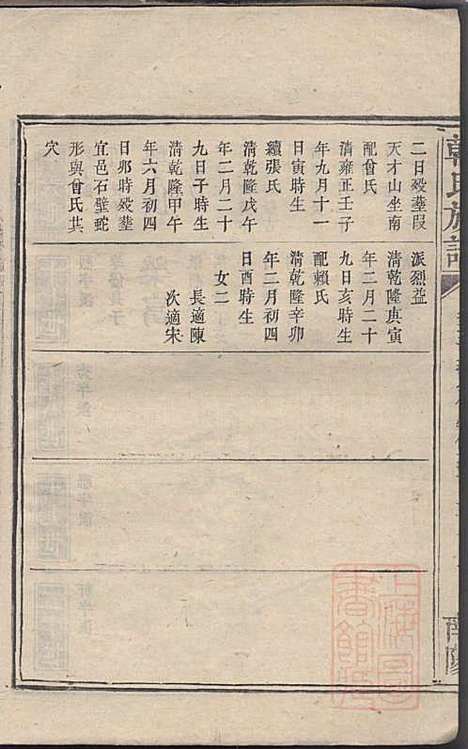 韓氏族譜
二日歿葬葭
天才山坐南
配曾氏
清雍正壬子
年九月十一
日寅時生
續張氏
清乾隆戊午
年二月二十
九日子時生
清乾隆甲午
年六月初四
日卯時歿葬
宜邑石壁蛇
形與曾氏共
穴
派烈益
清乾隆庚寅
年二月二十
九日亥時生
配賴氏
清乾隆辛卯
年二月初四
日酉時生
女二
長適陳
次適宋
南陽
上海圖
書館藏